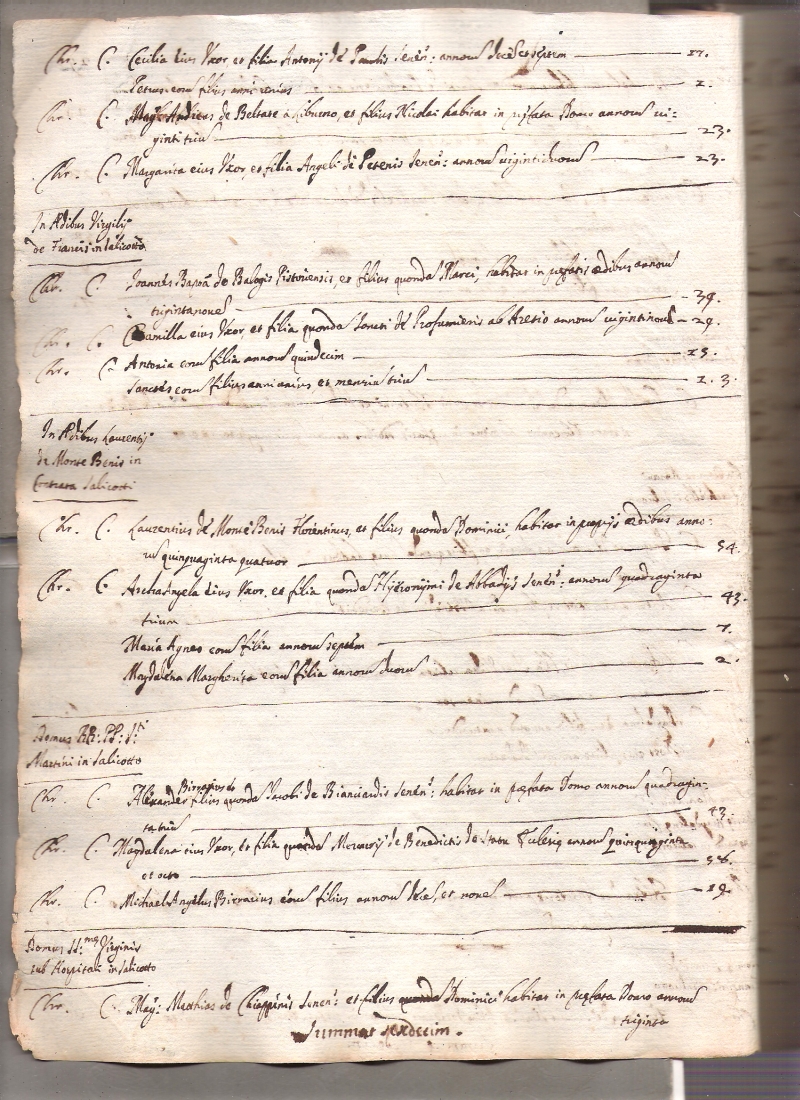 Chr. C. Cecilia eius Uxor et filia Antonij de Paulis Senens: annorum decem et septem 17.
Petrus eorum filius anni unius 1.
Chr. C. Magr Andreas de Beltate à Liburno, et filius Nicolai habitat in præfata Domo annorum vi-
ginti trium 23.
Chr. C. Margarita eius Uxor, et filia Angeli de Senens: annorum viginti duorum 23.
In Ædibus Virgilij
de Francis in Salicotto
Chr. C. Joannes Bapta de Balogis Pistoriensis, et filius quondam Marci, habitat in præfatis ædibus annorum
triginta novem 39.
Chr. C. Camilla eius Uxor, et filia quondam de Profumieris ab Aretio annorum viginti novem 29.
Chr. C. Antonia eorum filia annorum quindecim 15.
Sanctes eorum filius anni unius, et mensium trium 1. 3.
In Ædibus Laurentij
de Monte Benis in
Contrata Salicotti
Chr. C. Laurentius de Monte Benis Florentinus, et filius quondam Dominici, habitat in proprijs ædibus anno-
rum quinquaginta quatuor 54.
Chr. C. Archangela eius Uxor, et filia quondam Hyeronymi de Abbatijs Senens: annorum quadraginta
trium 43.
Maria Agnes eorum filia annorum septem 7.
Magdalena Margherita eorum filia annorum duorum 2.
Domus RR: PP: Sti
Martini in Salicotto
Chr. C. Alexander filius quondam Jacobi de Bianciardis Senens: habitat in præfata Domo annorum quadragin-
ta trium 43.
Chr. C. Magdalena eius Uxor, et filia quondam Mercurij de Benedictis de Statu Ecclesiæ annorum quinquaginta
et octo 58.
Chr. C. Michael Angelus eorum filius annorum decem, et novem 19.
Domus SS:mæ Virginis
sub Hospitali in Salicotto
Chr. C. Magr: Matthias de Chiappinis Senens: et filius quondam Dominici habitat in præfata Domo annorum
triginta
Summat sexdecim.